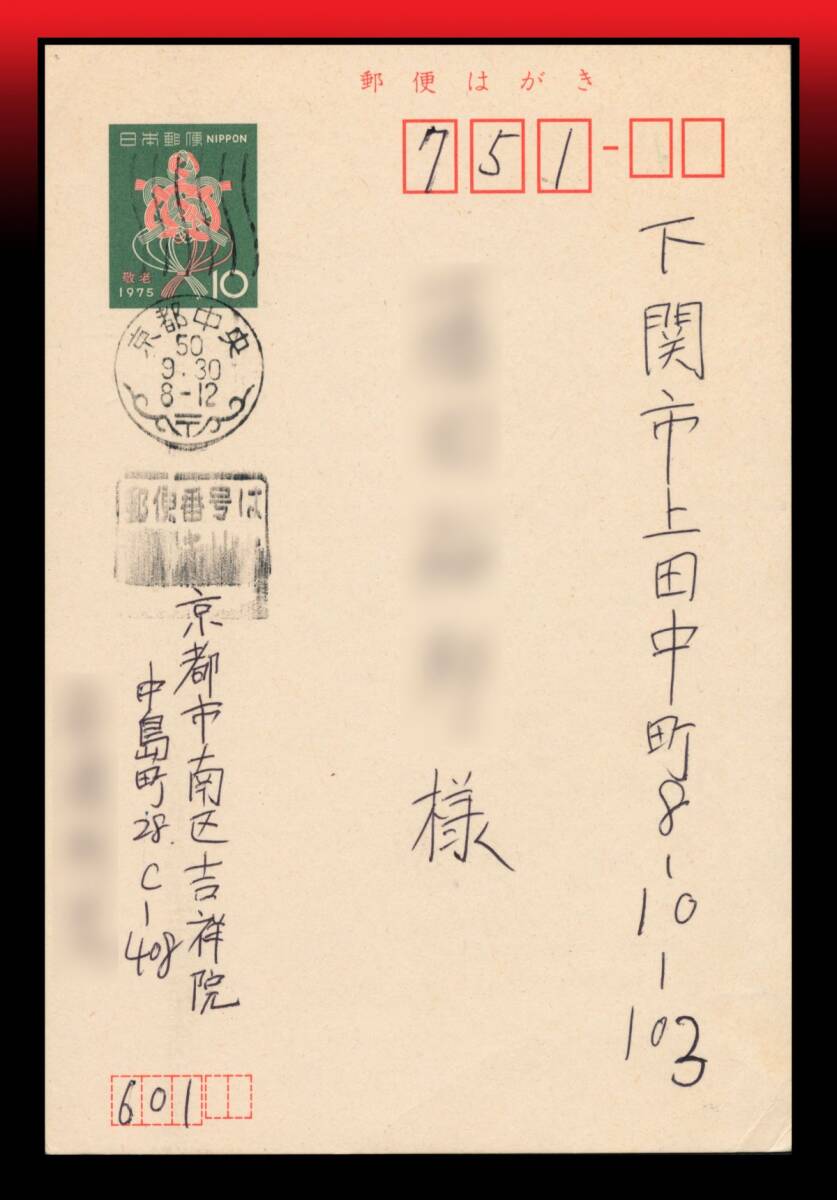 郵便はがき
日本郵便 NIPPON
敬老
1975
10
751
下関市上田中町8-10-103
様
京都中央
50
9.30
8-12
郵便番号は
京都市南区吉祥院
中島町28.C-408
601